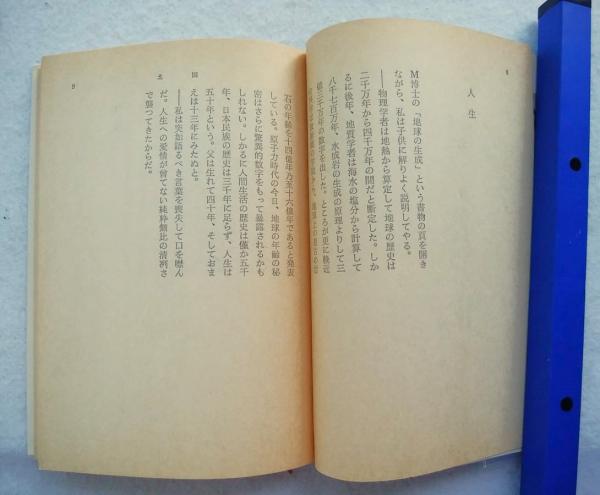 8
人生
M博士の「地球の生成」という書物の頁を開き
ながら、私は子供に解りよく説明してやる。
――物理学者は地熱から算定して地球の歴史は
二千万年から四千万年の間だと断定した。しか
るに後年、地質学者は海水の塩分から計算して
八千七百万年、水成岩の生成の原理よりして三
億三千万年の数字を出した。ところが更に最近
石の年齢を十四億年乃至十六億年であると発表
している。原子力時代の今日、地球の年齢の秘
密はさらに驚異的数字をもって暴露されるかも
しれない。しかるに人間生活の歴史は僅か五千
年、日本民族の歴史は三千年に足らず、人生は
五十年という。父は生れて四十年、そしておま
えは十三年にみたぬと。
――私は突如語るべき言葉を喪失して口を噤ん
だ。人生への愛情が曾てない純粋無比の清冽さ
で襲ってきたからだ。
北国
9